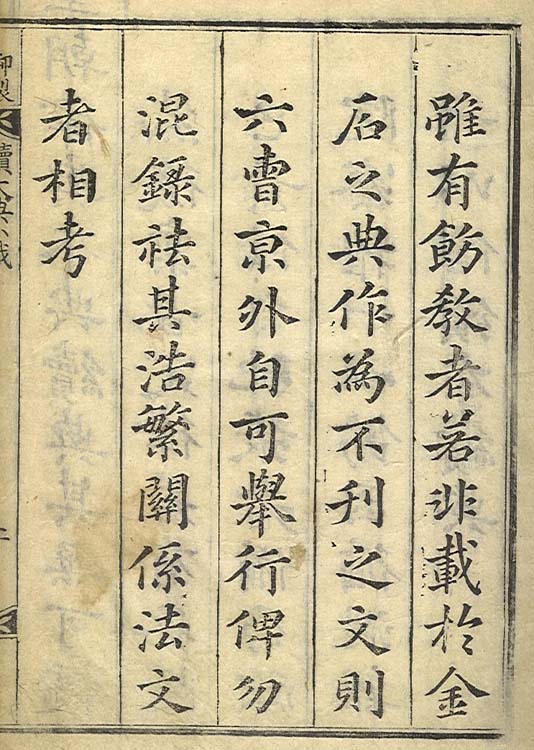 雖有飭教者若非載於金
石之典作為不刊之文則
六曹京外自可舉行俾勿
混錄祛其浩繁關係法文
者相考
御製